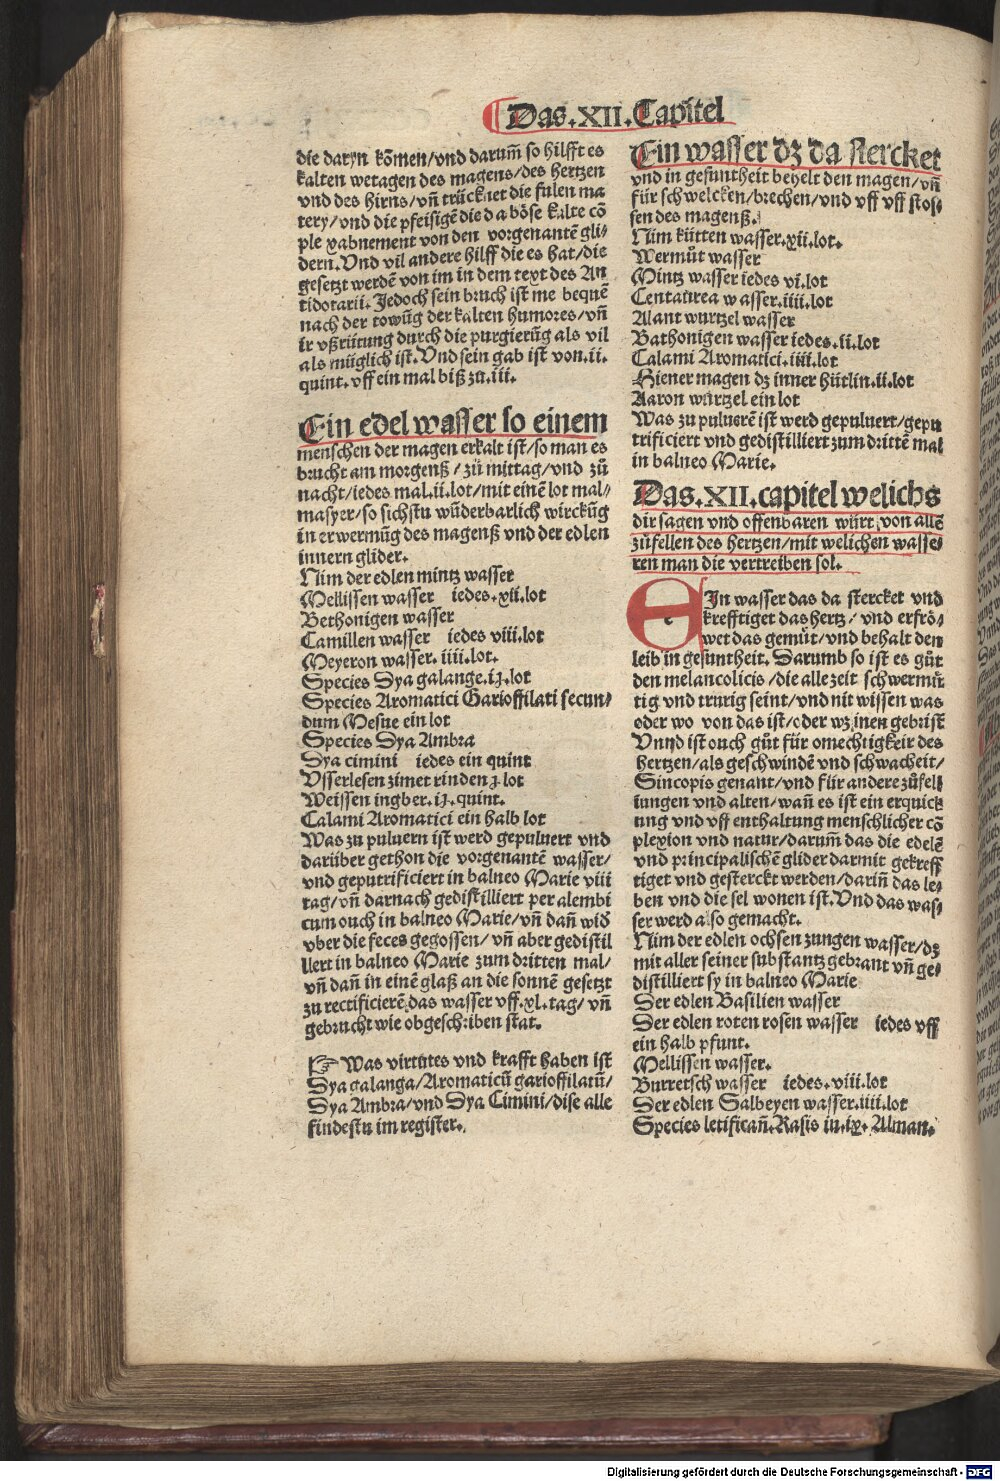 Das.XII.Capitel
die daryn kōmen/vnd darum̄ so hilfft es
kalten wetagen des magens/des hertzen
vnd des hirns/vn̄ trücknet die fulen ma
tery/vnd die pfeisigē die da böse kalte cō
plexabnement von den vorgenantē gli/
dern.Vnd vil andere hilff die es hat/die
gesetzt werdē von im in dem text des An
tidotarii.Jedoch sein bruch ist me bequē
nach der towūg der kalten humores/vn̄
ir vßrütung durch die purgierūg als vil
als müglich ist.Vnd sein gab ist von.ii.
quint.vff ein mal biß zu.iii.
Ein edel wasser so einem
menschen der magen erkalt ist/so man es
brucht am morgenß/zů mittag/vnd zů
nacht/iedes mal.ii.lot/mit einē lot mal/
masyer/so sichstu wūderbarlich wirckūg
in erwermūg des magenß vnd der edlen
innern glider.
Nim der edlen mintz wasser
Mellissen wasser iedes.xii.lot
Bethonigen wasser
Camillen wasser iedes viii.lot
Meyeron wasser.iiii.lot.
Species Dya galange.iȷ.lot
Species Aromatici Garioffilati secun/
dum Mesue ein lot
Species Dya Ambra
Dya cimini iedes ein quint
Vsserlesen zimet rinden ȷ.lot
Weissen ingber.iȷ.quint.
Calami Aromatici ein halb lot
Was zu puluern ist werd gepuluert vnd
darüber gethon die vorgenantē wasser/
vnd geputrificiert in balneo Marie viii
tag/vn̄ darnach gedistilliert per alembi
cum ouch in balneo Marie/vn̄ dan̄ wid̕
vber die feces gegossen/vn̄ aber gedistil
liert in balneo Marie zum dritten mal/
vn̄ dan̄ in einē glaß an die sonnē gesetzt
zu rectificierē das wasser vff.xl.tag/vn̄
gebrucht wie obgeschriben stat.
☞ Was virtutes vnd krafft haben ist
Dya galanga/Aromaticū garioffilatū/
Dya Ambra/vnd Dya Cimini/dise alle
findestu im register.
Ein wasser dz da stercket
vnd in gesuntheit behelt den magen/vn̄
für schwelcken/brechen/vnd vff vff stos/
sen des magenß.
Nim kütten wasser.xii.lot.
Wermůt wasser
Mintz wasser iedes vi.lot
Centaurea wasser.iiii.lot
Alant wurtzel wasser
Bathonigen wasser iedes.ii.lot
Calami Aromatici.iiii.lot
Hiener magen dz inner hütlin.ii.lot
Aaron würtzel ein lot
Was zu puluerē ist werd gepuluert/gepu
trificiert vnd gedistilliert zum drittē mal
in balneo Marie.
Das.XII.capitel welichs
dir sagen vnd offenbaren würt von allē
zůfellen des hertzen/mit welichen wasse/
ren man die vertreiben sol.
EIn wasser das da stercket vnd
krefftiget das hertz/vnd erfrö/
wet das gemüt/vnd behalt den
leib in gesuntheit.Darumb so ist es gůt
den melancolicis/die alle zeit schwermü
tig vnd trurig seint/vnd nit wissen was
oder wo von das ist/oder wz inen gebrist
Vnnd ist ouch gůt für omechtigkeir des
hertzen/als geschwindē vnd schwacheit/
Sincopis genant/vnd für andere zůfell
iungen vnd alten/wan̄ es ist ein erquick
ung vnd vff enthaltung menschlicher cō
plexion vnd natur/darum̄ das die edelē
vnd principalischē glider darmit gekreff
tiget vnd gesterckt werden/darin̄ das le/
ben vnd die sel wonen ist.Vnd das was/
ser werd also gemacht.
Nim der edlen ochsen zungen wasser/dz
mit aller seiner substantz gebrant vn̄ ge/
distilliert sy in balneo Marie
Der edlen Basilien wasser
Der edlen roten rosen wasser iedes vff
ein halb pfunt.
Mellissen wasser.
Burretsch wasser iedes.viii.lot
Der edlen Salbeyen wasser.iiii.lot
Species letifican̄.Rasis in.ix.Alman.
Digitalisierung gefördert durch die Deutsche Forschungsgemeinschaft - DFG